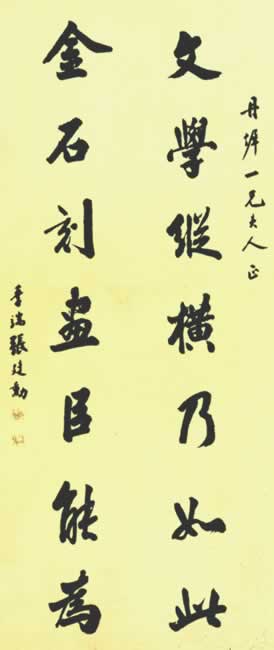 丹墀一兄大人正
文學縱橫乃如此
金石刻畫臣能為
季端張建勳